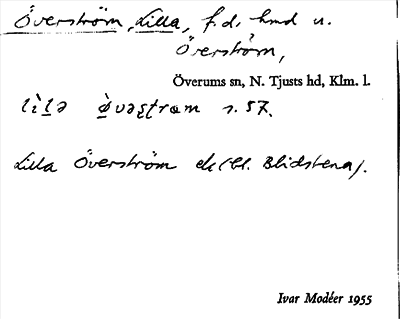 Överström, Lilla, f.d. hmd u.
Överström,
Överums sn, N. Tjusts hd, Klm. l.
s. 57.
Lilla Överström ek (bl. Blidstena).
Ivar Modéer 1955